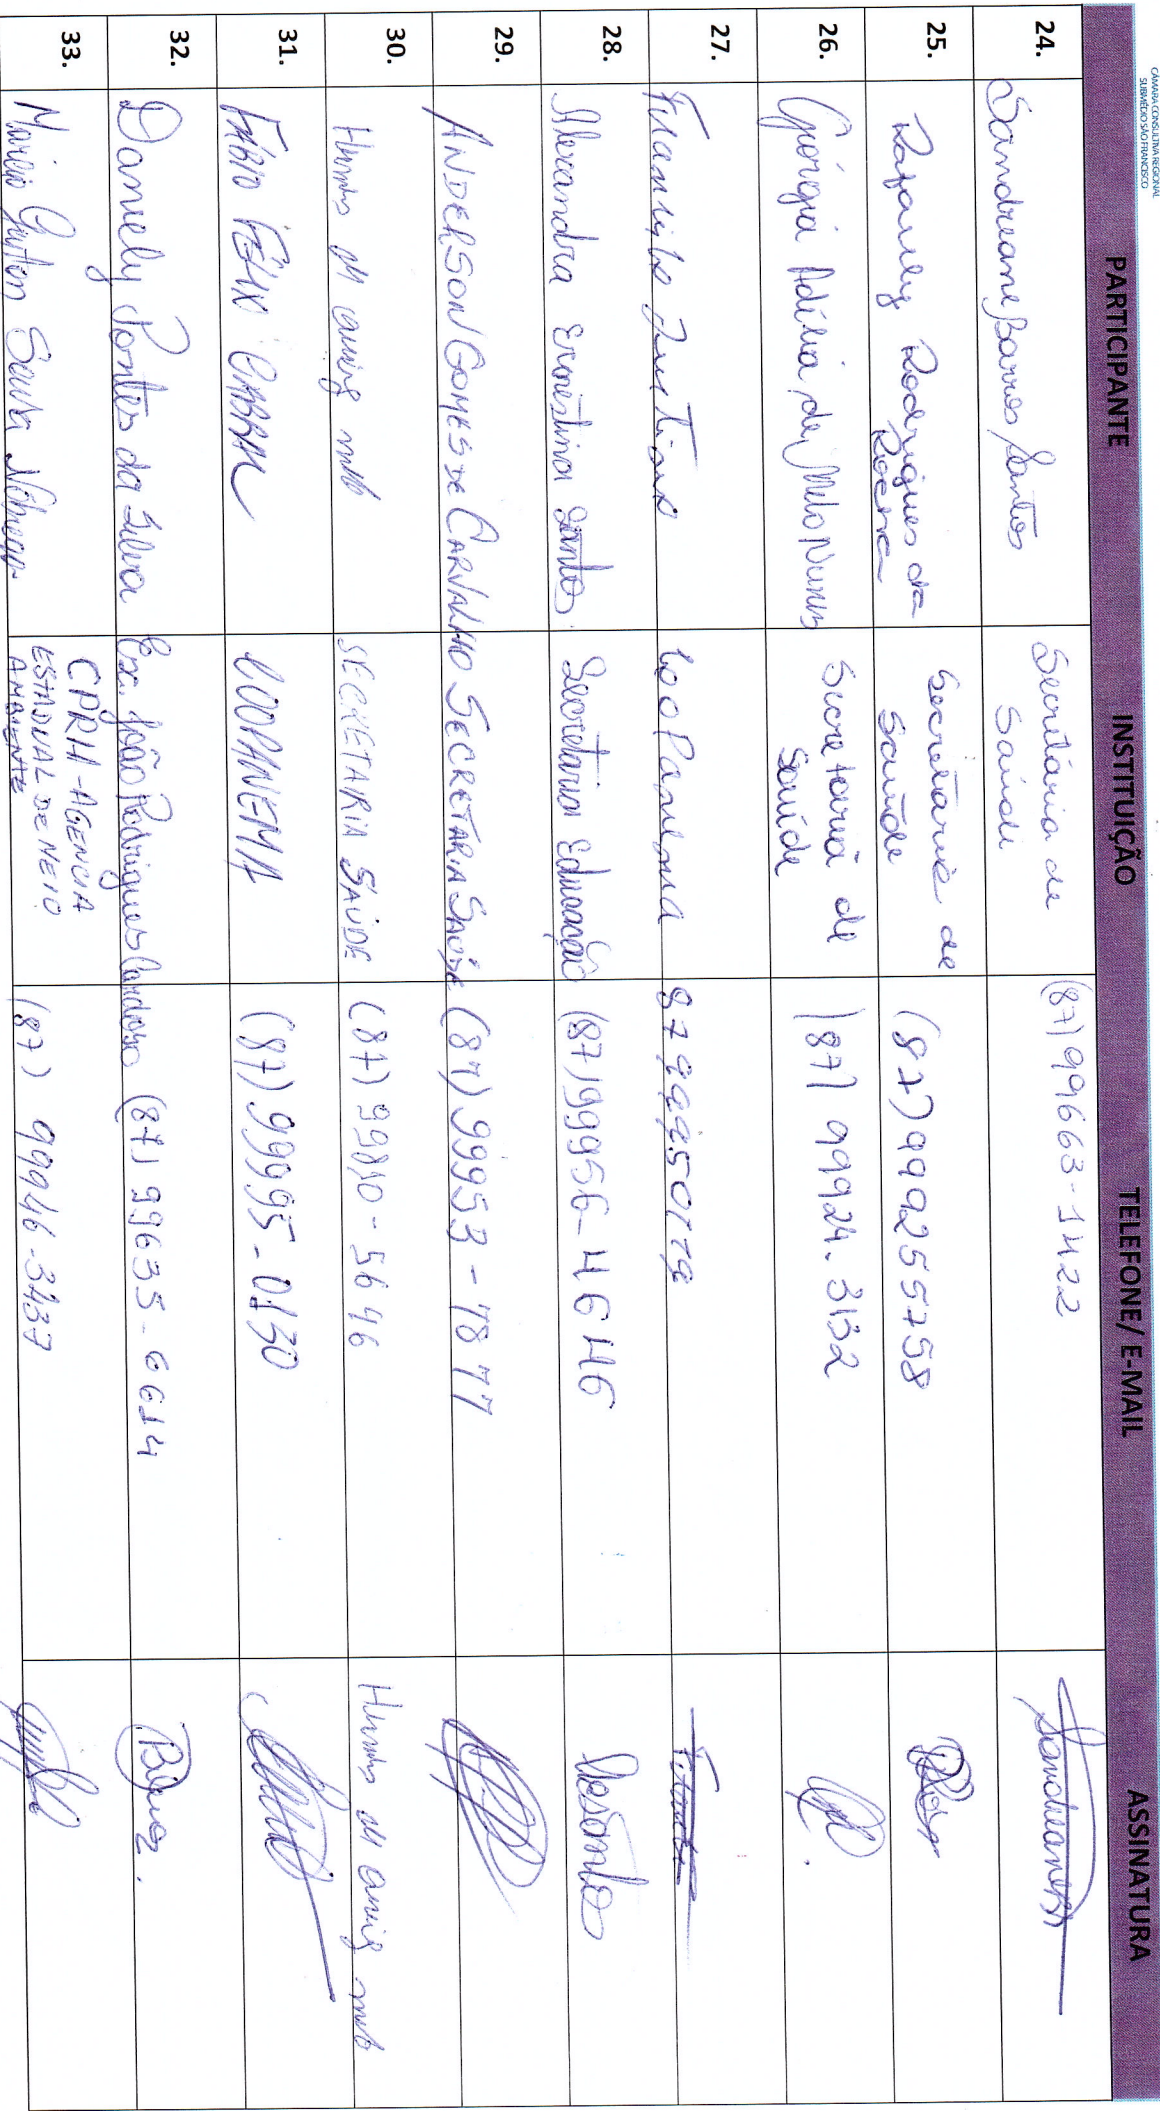 CÂMARA CONSULTIVA REGIONAL
SUBMÉDIO SÃO FRANCISCO
PARTICIPANTE INSTITUIÇÃO TELEFONE/ E-MAIL ASSINATURA
24. Sandreane Barros Santos Secretária de Saúde (87) 99663-1422
25. Rafanely Rodrigues da Rocha Secretaria de Saúde (87) 999255758
26. Geórgia Adélia de Melo Nunes Secretaria de Saúde (87) 99924.3132
27. CooPanema
28. Alexandra Ernestina Santos. Secretaria Educação (87) 99956-4646
29. ANDERSON GOMES DE CARVALHO SECRETARIA SAÚDE (87) 99953-7877
30. SECRETARIA SAÚDE (87) 99810-5696
31. FÁBIO FÉLIX CABRAL COOPANEMA (87) 99995-0130
32. Daniely Pontes da Silva Esc. João Rodrigues Cardoso (87) 99635-6614
33. CPRH - AGENCIA ESTADUAL DE MEIO AMBIENTE (87) 99946-3437